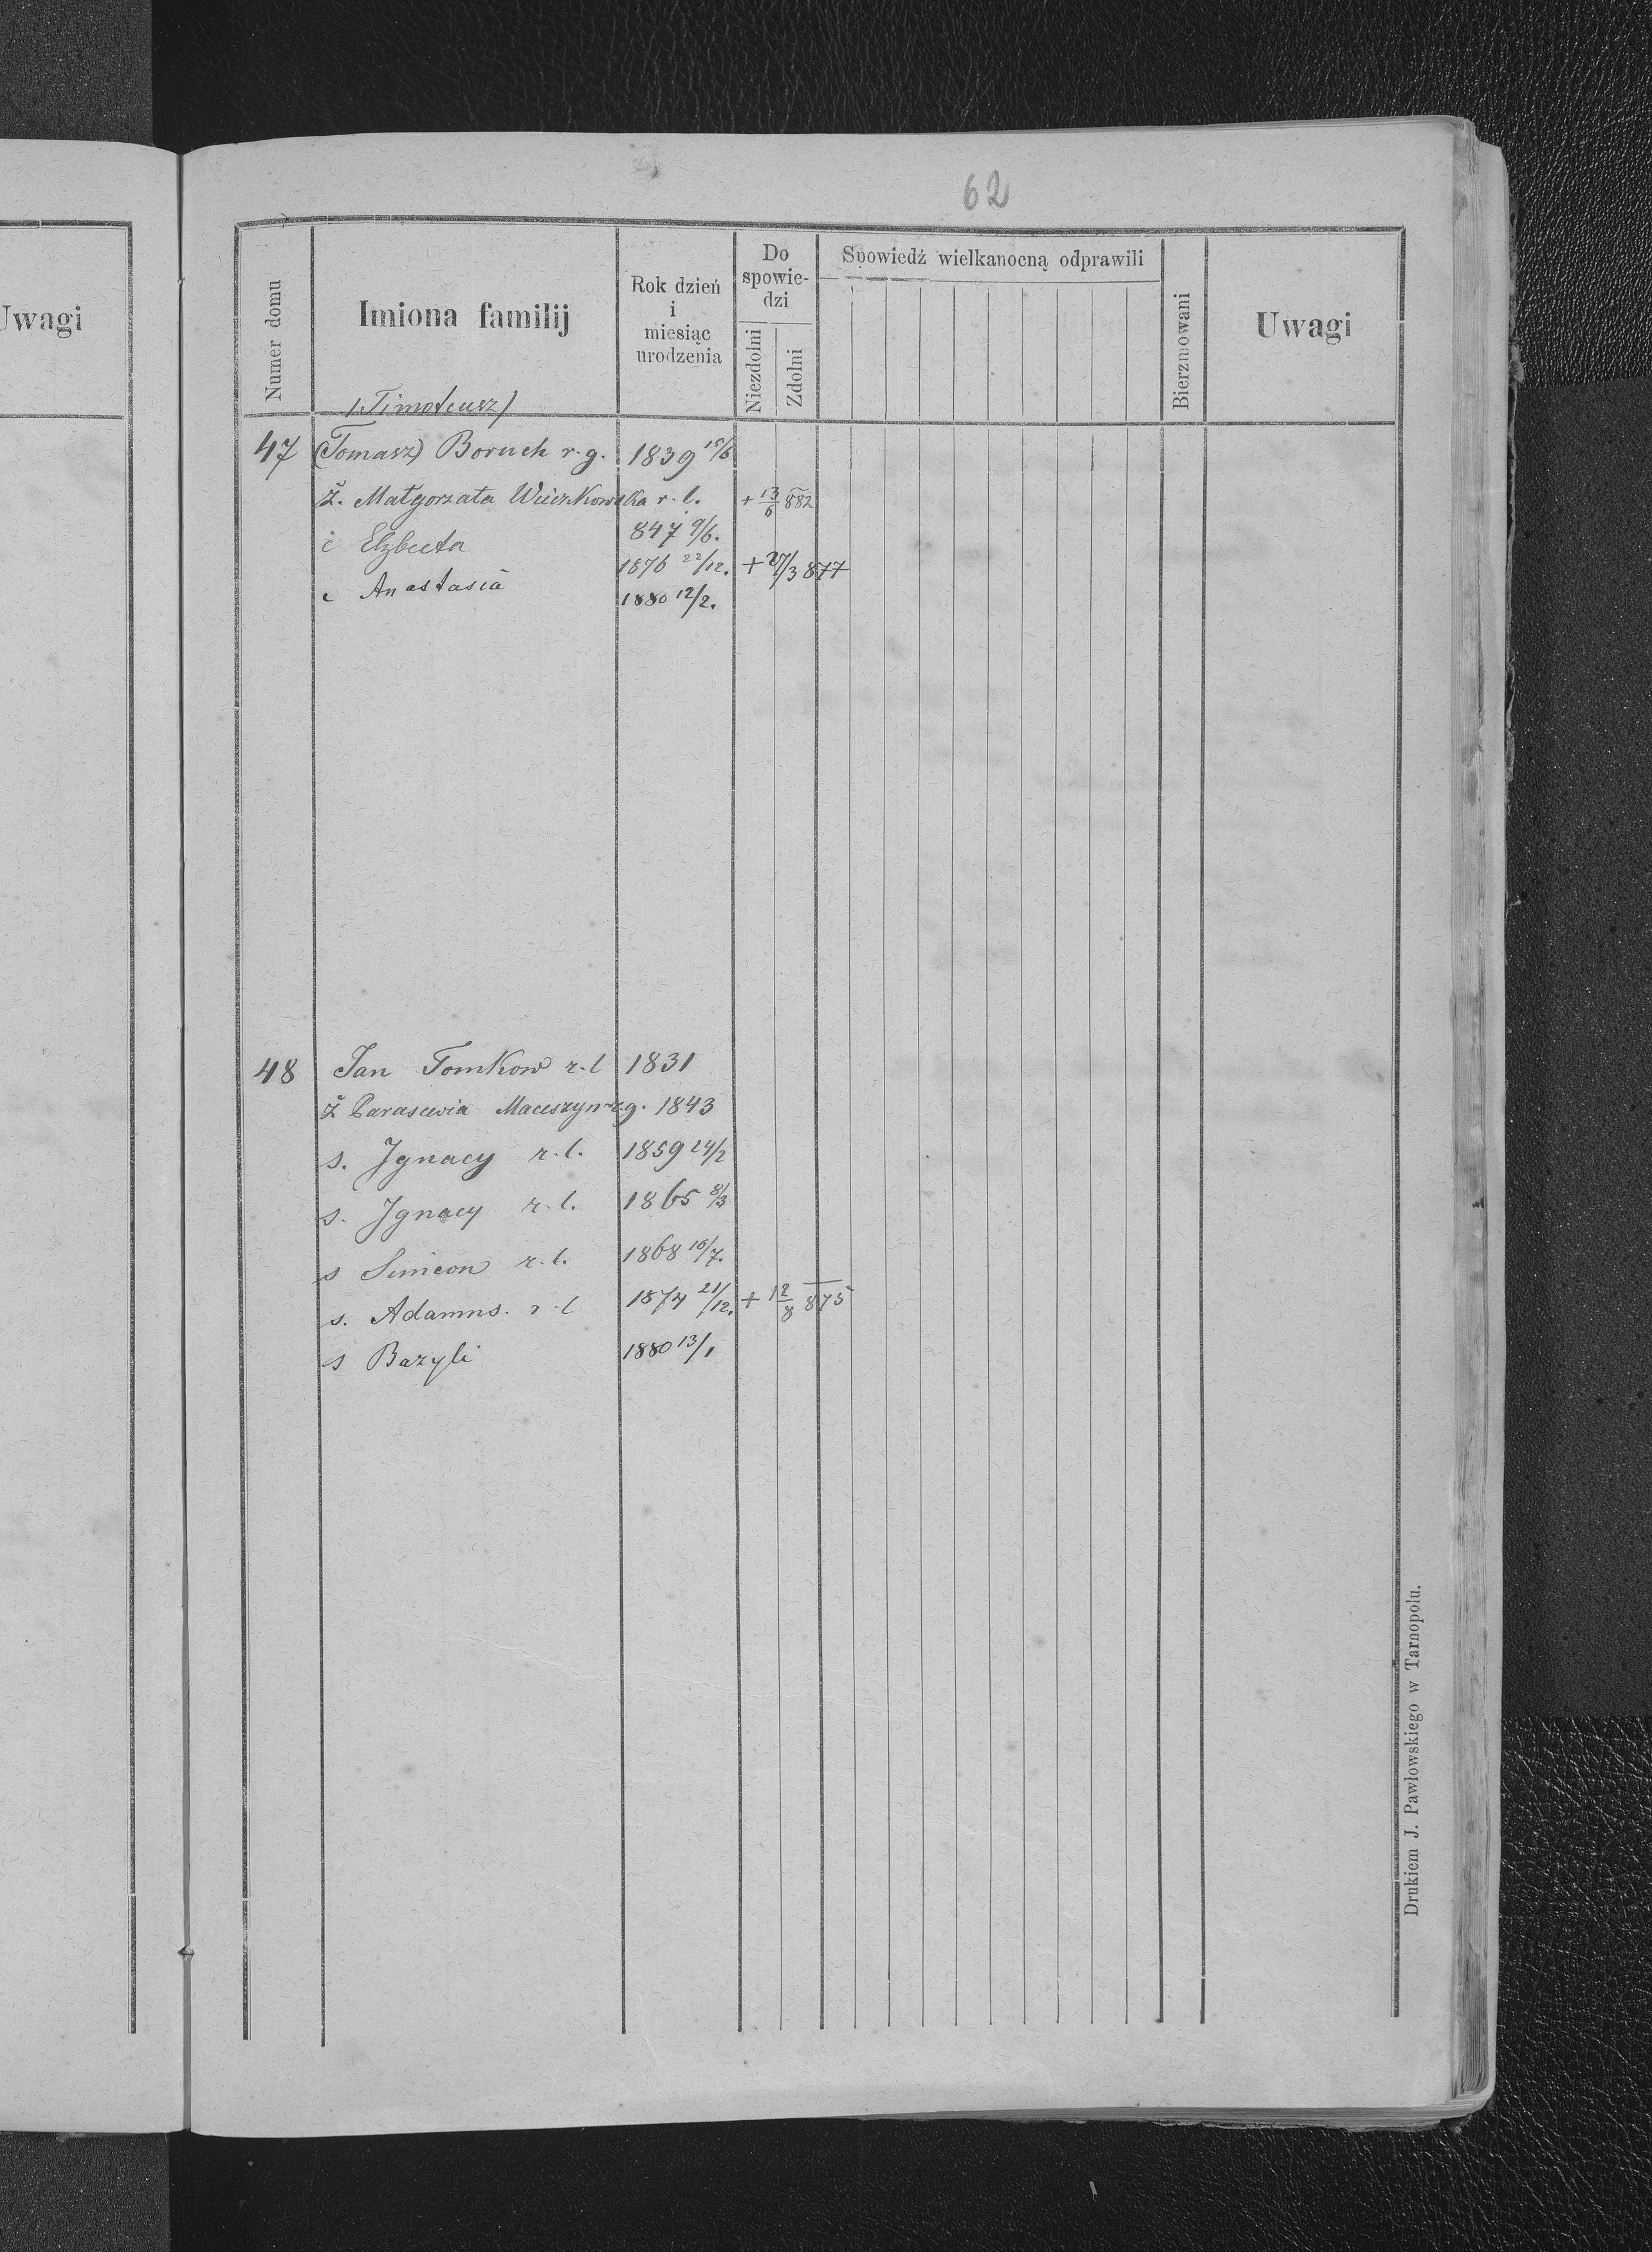 62
Uwagi
Numer domu
Imiona familij
Rok dzień
i
miesiąc
urodzenia
Do
spowie-
dzi
Niezdolni
Zdolni
Spowiedź wielkanocną odprawili
Bierzmowani
Uwagi
(Timoteusz)
47 (Tomasz) Boruch r. g. 1839 15/6
ż. Małgorzata r. l. + 13/6 882
847 9/6.
c Elzbieta 1876 22/12. + 27/3 877
c Anastasia 1880 12/2.
48 Jan Tomkow r. l 1831
ż Parascewia r. g. 1843
s. Jgnacy r. l. 1859 24/2
s. Jgnacy r. l. 1865 8/3
s Simeon r. l. 1868 16/7.
s. Adamus. r. l 1874 21/12. + 12/8 875
s Bazyli 1880 13/1
Drukiem J. Pawłowskiego w Tarnopolu.